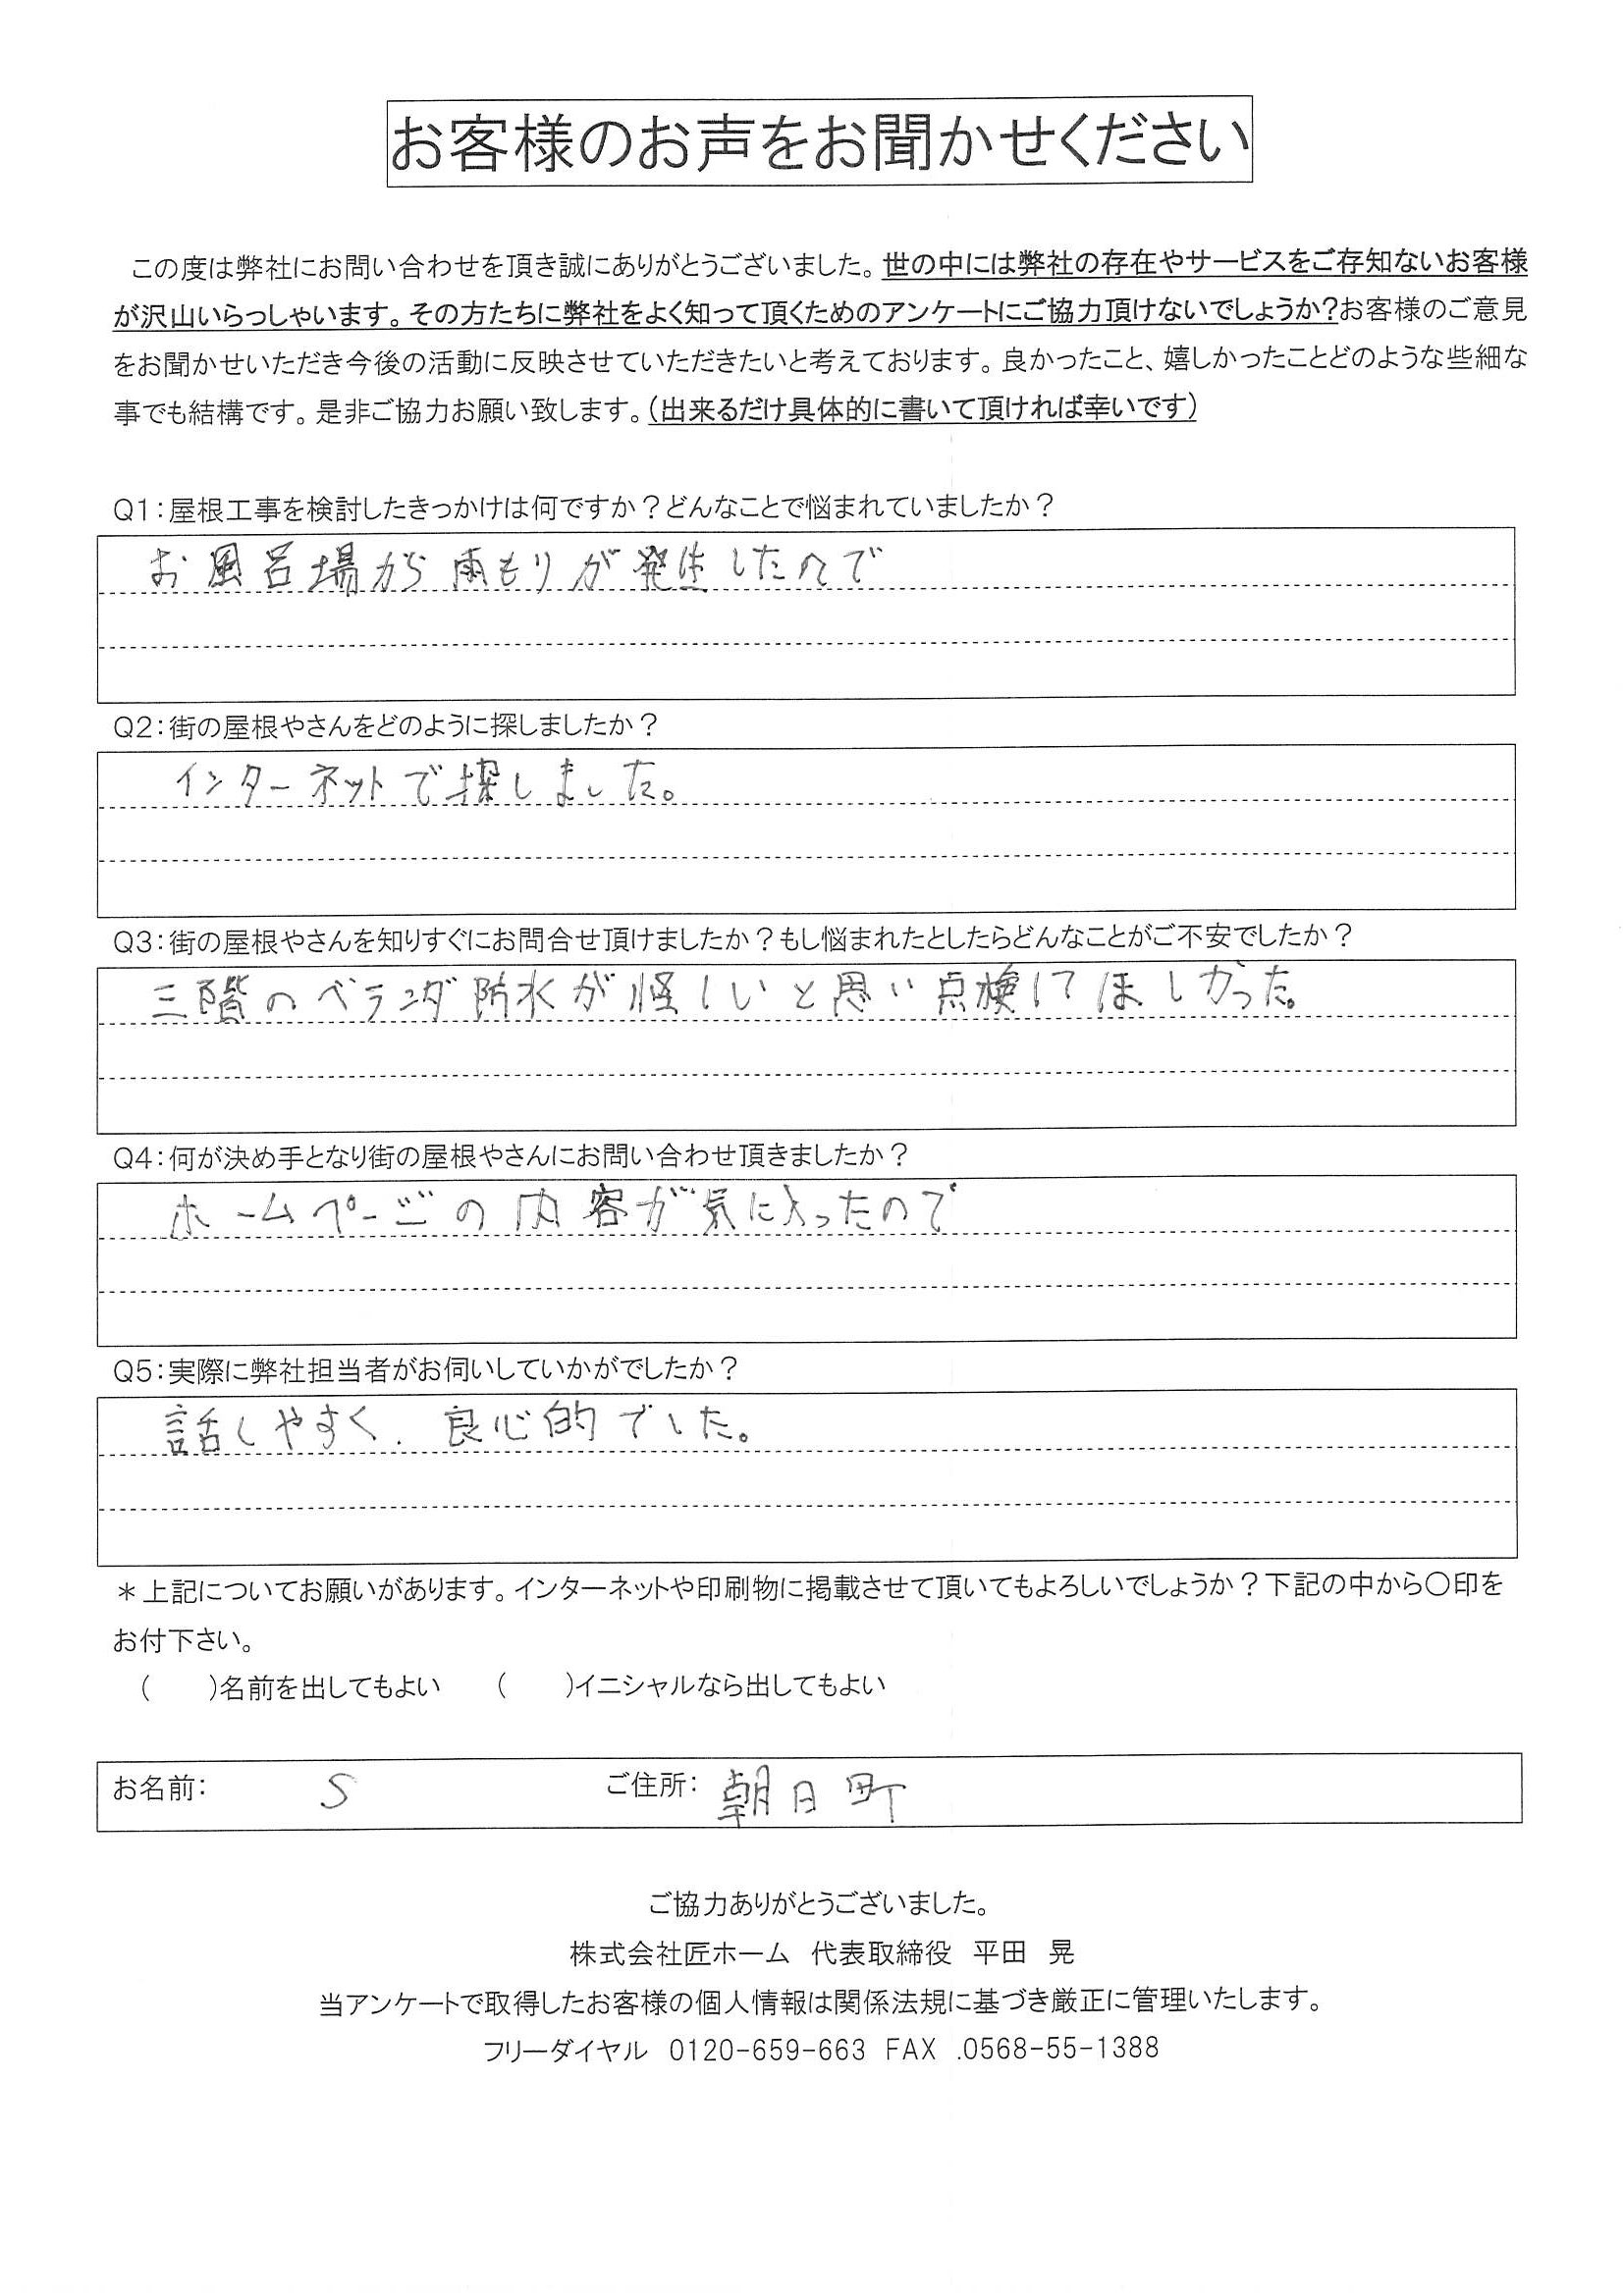 お客様のお声をお聞かせください
この度は弊社にお問い合わせを頂き誠にありがとうございました。世の中には弊社の存在やサービスをご存知ないお客様
が沢山いらっしゃいます。その方たちに弊社をよく知って頂くためのアンケートにご協力頂けないでしょうか?お客様のご意見
をお聞かせいただき今後の活動に反映させていただきたいと考えております。良かったこと、嬉しかったことどのような些細な
事でも結構です。是非ご協力お願い致します。(出来るだけ具体的に書いて頂ければ幸いです)
Q1:屋根工事を検討したきっかけは何ですか?どんなことで悩まれていましたか?
お風呂場から雨もりが発生したので
Q2:街の屋根やさんをどのように探しましたか?
インターネットで探しました。
Q3:街の屋根やさんを知りすぐにお問合せ頂けましたか?もし悩まれたとしたらどんなことがご不安でしたか?
三階のベランダ防水が怪しいと思い点検してほしかった。
Q4:何が決め手となり街の屋根やさんにお問い合わせ頂きましたか?
ホームページの内容が気に入ったので
Q5:実際に弊社担当者がお伺いしていかがでしたか?
話しやすく、良心的でした。
*上記についてお願いがあります。インターネットや印刷物に掲載させて頂いてもよろしいでしょうか?下記の中から〇印を
お付下さい。
(　　)名前を出してもよい　　(　　)イニシャルなら出してもよい
お名前: S　ご住所: 朝日町
ご協力ありがとうございました。
株式会社匠ホーム　代表取締役　平田　晃
当アンケートで取得したお客様の個人情報は関係法規に基づき厳正に管理いたします。
フリーダイヤル　0120-659-663 FAX .0568-55-1388